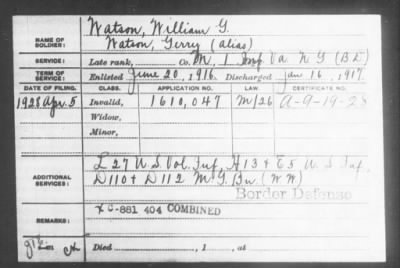 NAME OF SOLDIER: Watson, William G.
Watson, Gerry (alias)
SERVICE: Late rank, Co. M, 1 Inf. Va. N G (B D)
TERM OF SERVICE: Enlisted June 20, 1916. Discharged Jan 16, 1917.
DATE OF FILING. CLASS. APPLICATION NO. LAW. CERTIFICATE NO.
1928 Apr. 5 Invalid, 1610,047 M/26 A-9-19-28
Widow,
Minor,
ADDITIONAL SERVICES: L 27 U.S. Vol. Inf., H 13 & E 5 U.S. Inf.
D 110 + D 112 M. G. Bn. (W W)
Border Defense
REMARKS: X C-881 404 COMBINED
Died , 1 , at